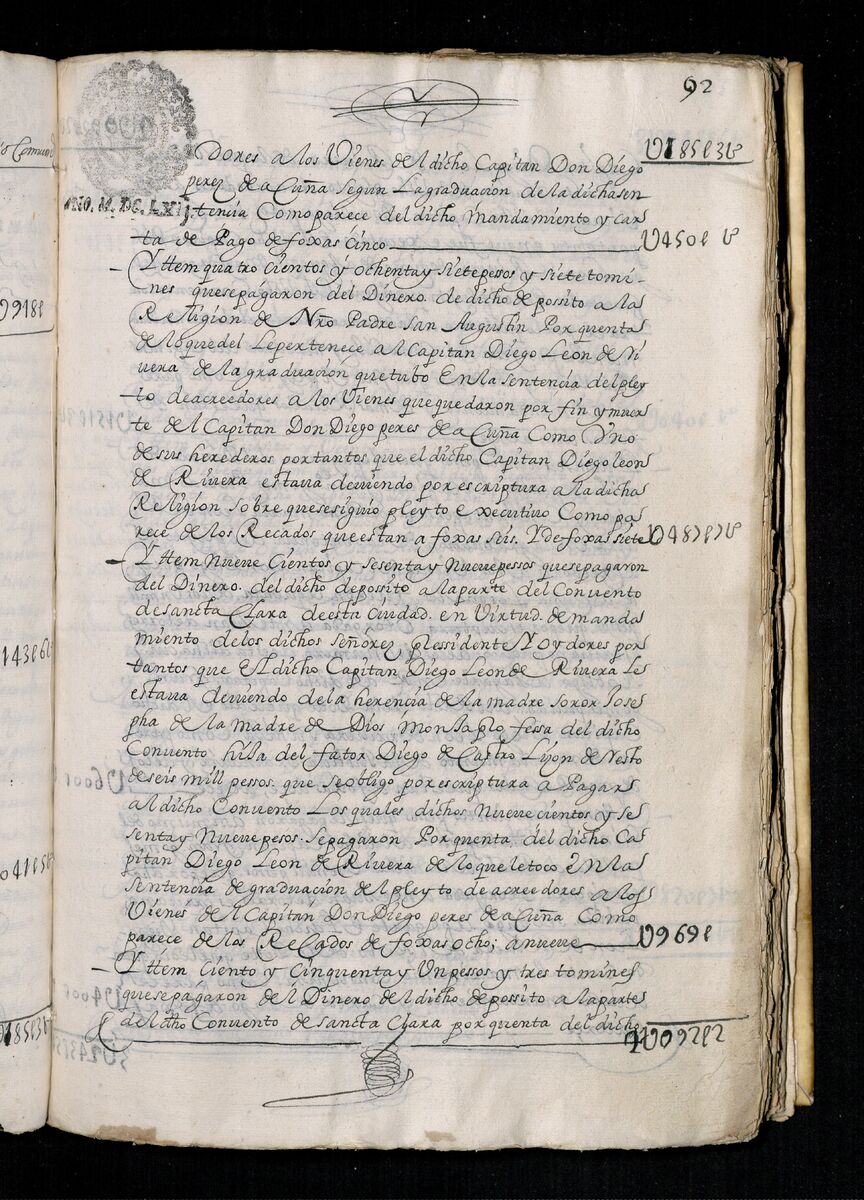 92
U185l3tt
dores a los Vienes del dicho Capitan Don Diego
perez de acuña segun La graduacion de la dicha sen
ANO. M. DC. LXII
tencia Como parece del dicho mandamiento y car
ta de Pago de foxas cinco U450l tt
Yttem quatro cientos y ochenta y siete pesos y siete tomi
nes que se pagaron del Dinero. de dicho depossito a la
Religion de Nrõ Padre san Augustin Por quenta
de lo que del Le pertenece al Capitan Diego Leon de Ri
uera de la graduacion que tubo En la sentencia del pley
to de acreedores a los Vienes que quedaron por fin y muer
te del Capitan Don Diego peres de acuña Como Vno
de sus herederos por tantos que el dicho Capitan Diego leon
de Riuera estaua deuiendo por escriptura a la dicha
Religion sobre que se siguio pleyto executiuo Como pa
rece de los Recados que estan a foxas seis. Y de foxas siete U487l7tt
Yttem Nueue Cientos y sesenta y Nueue pesos que se pagaron
del Dinero. del dicho deposito a la parte del Conuento
de sancta Clara de esta ciudad. en Virtud. de manda
miento de los dichos señores Pressidente Y oydores por
tantos que El dicho Capitan Diego Leon de Riuera Le
estaua deuiendo de la herencia de la madre soror Jose
pha de la madre de Dios monja professa del dicho
Conuento hija del fator Diego de Castro Lijon de Resto
de seis mill pessos. que se obligo por escriptura a Pagar
al dicho Conuento Los quales dichos Nueue cientos y se
senta y Nueue pesos. se pagaron Por quenta. del dicho Ca
pitan Diego Leon de Riuera de lo que le toco En la
sentencia de graduacion del pleyto de acreedores a los
Vienes del Capitan Don Diego peres de acuña Como
parece de los Recados de foxas ocho; a nueue U969l
Yttem Ciento y Cinquenta y Vn pessos y tres tomines
que se pagaron del Dinero del dicho depossito a la parte
del dho Conuento de sancta Clara por quenta del dicho
2U092l2